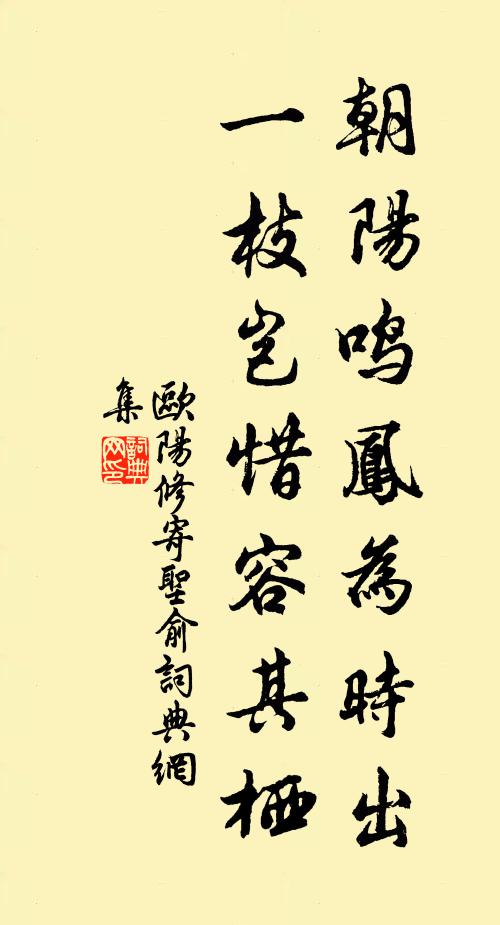 朝陽鳴鳳為時出
一枝豈惜容其栖
歐陽修寄聖俞詞典網
集
詞典
网印